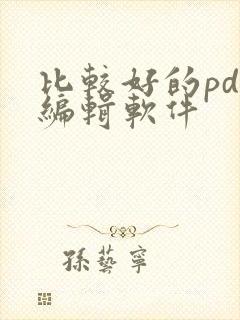 比較好的pd
編輯軟件
孫藝寧